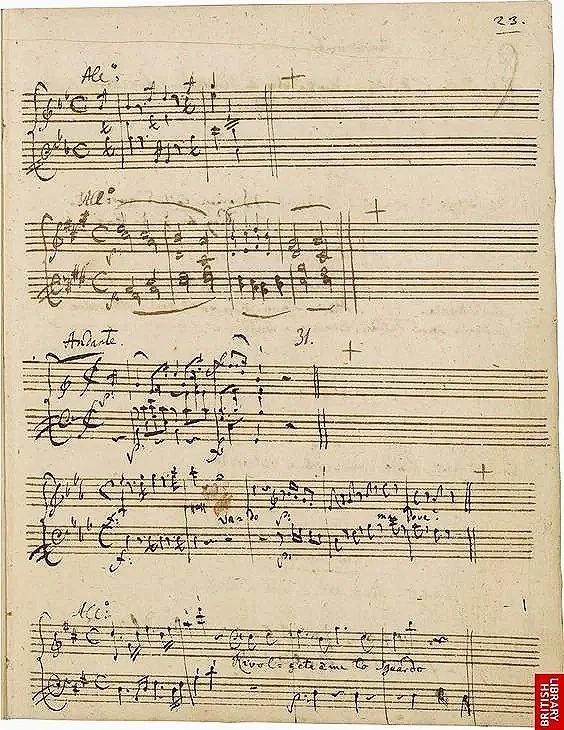 23.
Allo:
Allo
Andante. 31.
vado ma Dove?
Allo:
Rivolgete a me lo sguardo
BRITISH LIBRARY